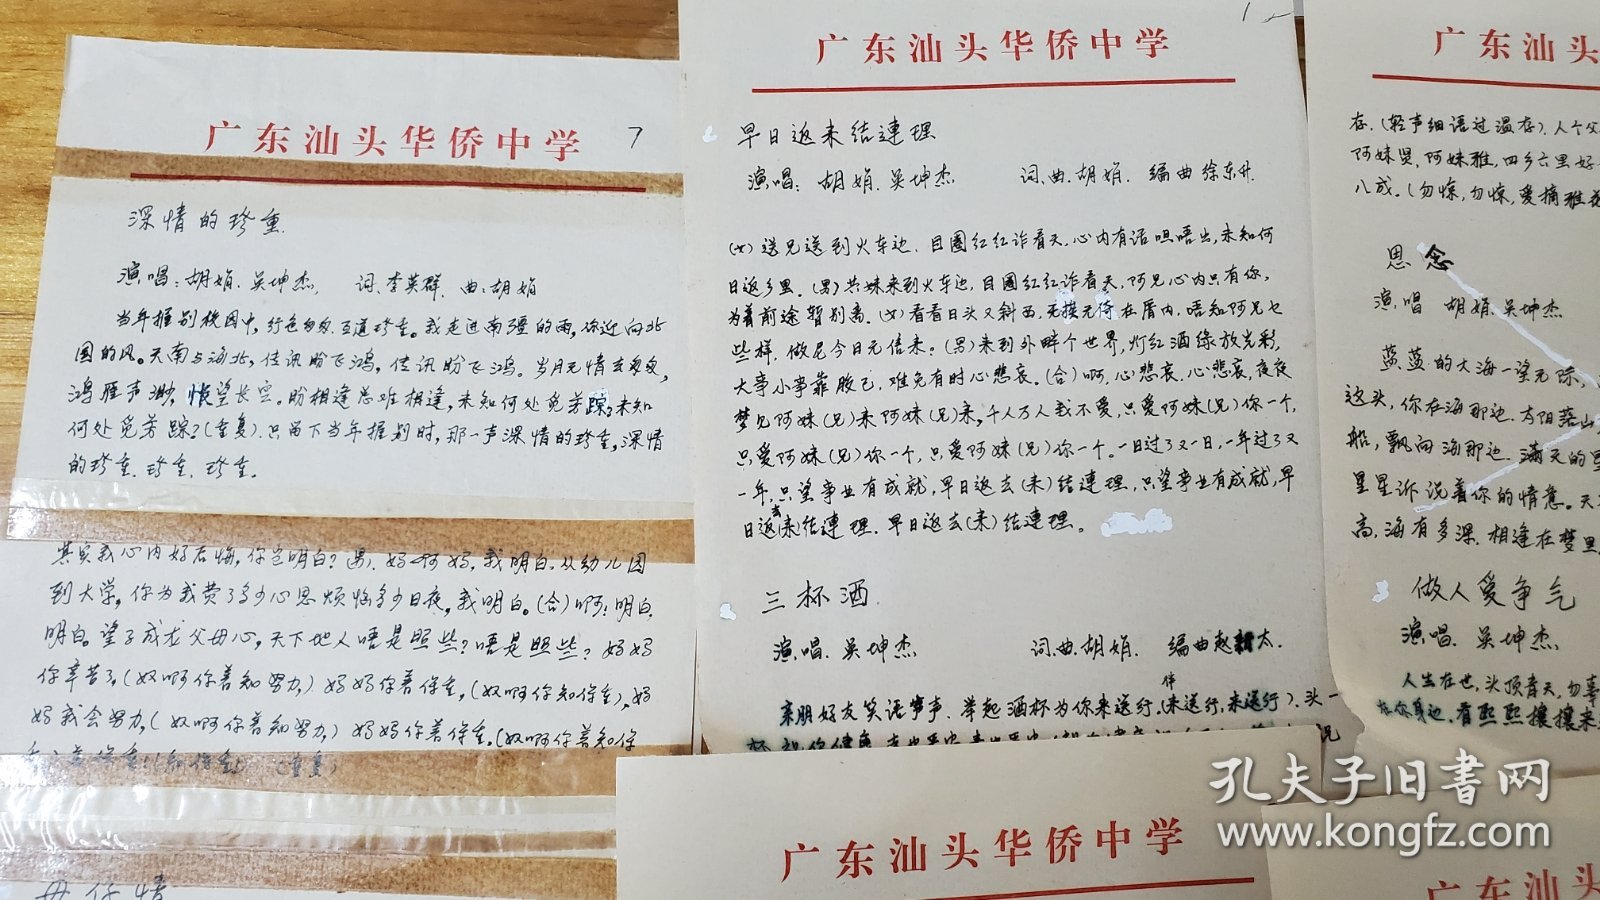 广东汕头华侨中学
7
深情的珍重.
演唱:胡娟.吴坤杰, 词.李英群. 曲:胡娟
当年握别校园中,行色匆匆.互道珍重。我走进南疆的雨,你近向北
国的风。天南与海北,佳讯盼飞鸿,佳讯盼飞鸿。岁月无情去匆匆,
鸿雁声渺,怅望长空。盼相逢总难相逢,未知何处觅芳踪?未知
何处觅芳踪?(重复).只留下当年握别时,那一声深情的珍重,深情
的珍重.珍重.珍重。
其实我心内好后悔,你岂明白?男).妈妈阿妈,我明白.从幼儿园
到大学,你为我费了多少心思烦恼多少日夜,我明白。(合)啊!明白.
明白。望子成龙父母心,天下地人唔是照些?唔是照些?妈妈
你辛苦了,(奴啊你着知努力)妈妈你着保重,(奴啊你知保重),妈
妈我会努力,(奴啊你着知努力)妈妈你着保重.(奴啊你着知保
(重复)
母仔情
广东汕头华侨中学
早日返来结連理
演唱:胡娟.吴坤杰 词.曲.胡娟. 编曲徐东升.
(女)送兄送到火车边.目圈红红诈看天.心内有话呾唔出,未知何
日返乡里.(男)共妹来到火车边,目圈红红诈看天,阿兄心内只有你,
为着前途暂别离.(女)看看日头又斜西,无挨无倚在厝内,唔知阿兄乜
些样.做尼今日无信来:(男)来到外畔个世界,灯红酒绿放光彩,
大事小事靠胶己,难免有时心悲哀。(合)啊,心悲哀.心悲哀,夜夜
梦见阿妹(兄)来阿妹(兄)来,千人万人我不爱,只爱阿妹(兄)你一个,
只爱阿妹(兄)你一个,只爱阿妹(兄)你一个。一日过了又一日,一年过了又
一年,只望事业有成就,早日返去(来)结連理,只望事业有成就,早
日返去(来)结連理.早日返去(来)结連理。
三杯酒.
演唱.吴坤杰 词.曲.胡娟. 编曲赵新太.
亲朋好友笑语声声.举起酒杯为你来送行.(来送行,来送行).头一
广东汕头华侨中学
广东汕头
存.(轻声细语过温存).人个父
阿妹贤,阿妹雅,四乡六里好
八成.(勿惊,勿惊,爱摘雅花
思念
演唱 胡娟.吴坤杰
蓝蓝的大海一望无际,
这头,你在海那边.太阳落山
船,飘向海那边.满天的星
星星诉说着你的情意。天
高,海有多深.相逢在梦里
做人爱争气
演唱.吴坤杰.
人生在世,头顶青天,勿辜
在你身边.看熙熙攘攘来
广东汕头
孔夫子旧书网
www.kongfz.com